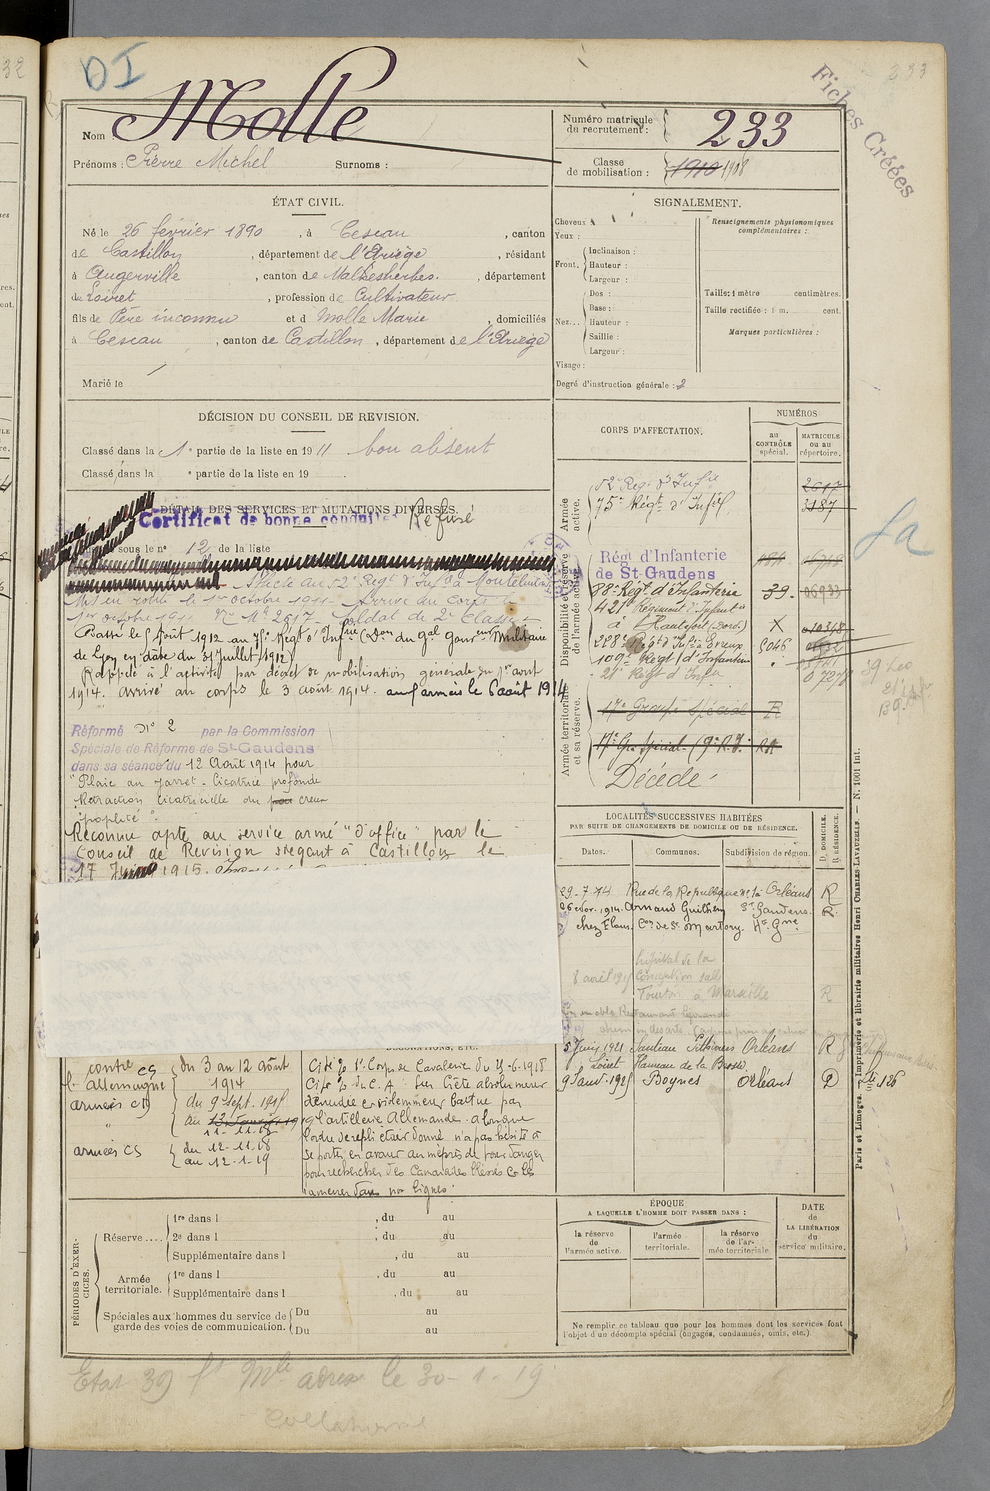 233
DI
Fiches Créées
Nom Molle
Prénoms : Pierre Michel Surnoms :
Numéro matricule du recrutement : 233
Classe de mobilisation : 1910 1908
ÉTAT CIVIL.
Né le 26 février 1890, à Cescau, canton
de Castillon, département de l'Ariège, résidant
à Augerville, canton de Malesherbes, département
du Loiret, profession de Cultivateur
fils de Père inconnu et d Molle Marie, domiciliés
à Cescau, canton de Castillon, département de l'Ariège
Marié le
SIGNALEMENT.
Cheveux
Yeux :
Front. Inclinaison :
Hauteur :
Largeur :
Nez... Dos :
Base :
Hauteur :
Saillie :
Largeur :
Visage :
Renseignements physionomiques complémentaires :
Taille : 1 mètre centimètres.
Taille rectifiée : 1 m. cent.
Marques particulières :
Degré d'instruction générale : 2
DÉCISION DU CONSEIL DE REVISION.
Classé dans la 1e partie de la liste en 1911 bon absent
Classé dans la e partie de la liste en 19
DÉTAIL DES SERVICES ET MUTATIONS DIVERSES.
Certificat de bonne conduite Refusé
sous le no 12 de la liste
Mis en route le 1er octobre 1911. Arrivé au corps le
1er octobre 1911. No Mle 2617. soldat de 2e classe
Passé le 5 Août 1912 au 75e Régt d'Infrie (Don du Gal Gouvneur Militaire
de Lyon en date du 31 Juillet 1912)
Rappelé à l'activité par décret de mobilisation générale du 1er août
1914. arrivé au corps le 3 août 1914. aux armées le 6 août 1914
Réformé No 2 par la Commission
Spéciale de Réforme de St-Gaudens
dans sa séance du 12 Août 1914 pour
"Plaie au jarret. Cicatrice profonde
Rétraction cicatricielle du creux
poplité".
Reconnu apte au service armé "d'office" par le
Conseil de Revision siégeant à Castillon le
17 Juin 1915.
CORPS D'AFFECTATION.
NUMÉROS
au CONTRÔLE spécial.
MATRICULE ou au répertoire.
Armée active.
52e Régt d'Infrie 2617
75e Régt d'Infie 3187
Disponibilité et réserve de l'armée active.
Régt d'Infanterie
de St-Gaudens
88e Régt d'Infanterie 39.
421e Régiment d'Infantie
à Hautefort (Dord.) X
228e Régt d'Infie à Evreux 5046
109e Régt d'Infanterie
21e Régt d'Infie
Armée territoriale et sa réserve.
17e Groupe Spécial R
17e Gr. Spécial (9e R.I.) RA
Décédé
LOCALITÉS SUCCESSIVES HABITÉES
PAR SUITE DE CHANGEMENTS DE DOMICILE OU DE RÉSIDENCE.
Dates. Communes. Subdivision de région. D. DOMICILE. R. RÉSIDENCE.
29-7-14 Rue de la République Orléans R
26 nov. 1914. Arnaud Guilhem St Gaudens R
chez Flous. Con de St Martory. Hte Gne
8 avril 191 hôpital de la
Conception salle
Tourton à Marseille R
5 Juin 1921 Santeau Pithiviers Orléans R
Loiret Hameau de la Brosse.
9 Janv. 1925 Boynes Orléans D
contre l'Allemagne CS du 3 au 12 août 1914
armées CD du 9 Sept. 1915
au 11-11-18
armées CS du 12-11-18
au 12-1-19
DÉCORATIONS, ETC.
Cité à 1e Corps de Cavalerie du 25-6-1918
Cité du C.A : Sur Crête absolument
dénudée et violemment battue par
l'artillerie Allemande. alors que
l'ordre de repli était donné n'a pas hésité à
se porter en avant au mépris de tout danger
pour rechercher des Camarades blessés et les
ramener dans nos lignes.
PÉRIODES D'EXERCICES.
Réserve.... 1re dans l , du au
2e dans l , du au
Supplémentaire dans l , du au
Armée territoriale. 1re dans l , du au
Supplémentaire dans l , du au
Spéciales aux hommes du service de garde des voies de communication. Du au
Du au
ÉPOQUE
A LAQUELLE L'HOMME DOIT PASSER DANS :
la réserve de l'armée active.
l'armée territoriale.
la réserve de l'armée territoriale
DATE de LA LIBÉRATION du service militaire.
Ne remplir ce tableau que pour les hommes dont les services font
l'objet d'un décompte spécial (engagés, condamnés, omis, etc.)
Paris et Limoges. — Imprimerie et librairie militaires Henri CHARLES-LAVAUZELLE. — N. 1001 Int.
Etat 39 ft Mle adressé le 30-1-19